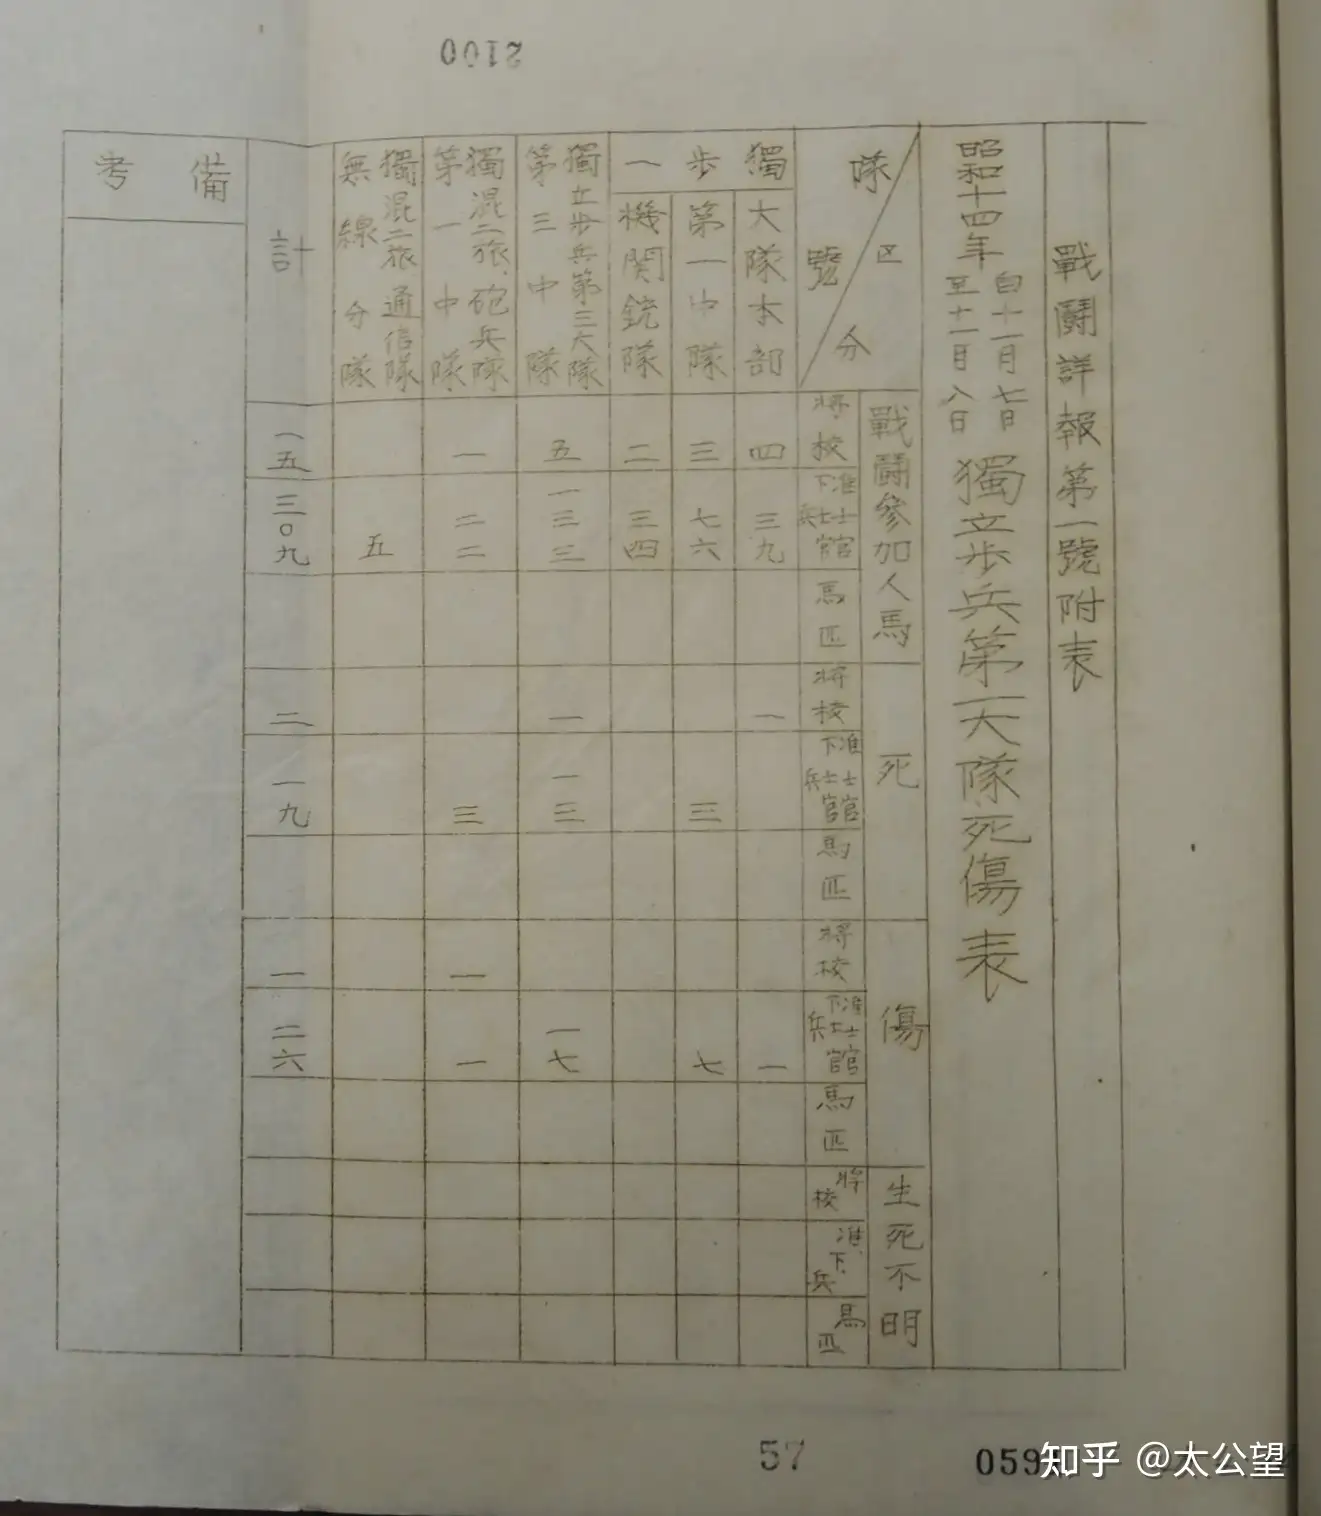 2100
戰鬪詳報第一號附表
昭和十四年 自十一月七日 至十一月八日 獨立步兵第一大隊死傷表
隊號 区分
戰鬪參加人馬 死 傷 生死不明
將校 准士官下士官兵 馬匹 將校 准士官下士官兵 馬匹 將校 准士官下士官兵 馬匹 將校 准、下、兵 馬匹
獨步一
大隊本部 四 三九 一 一
第一中隊 三 七六 三 七
機関銃隊 二 三四
獨立步兵第三大隊第三中隊 五 一三三 一 一三 一七
獨混二旅、砲兵隊第一中隊 一 二二 三 一 一
獨混二旅通信隊無線分隊 五
計 一五 三〇九 二 一九 一 二六
備考
57
059
知乎 @太公望